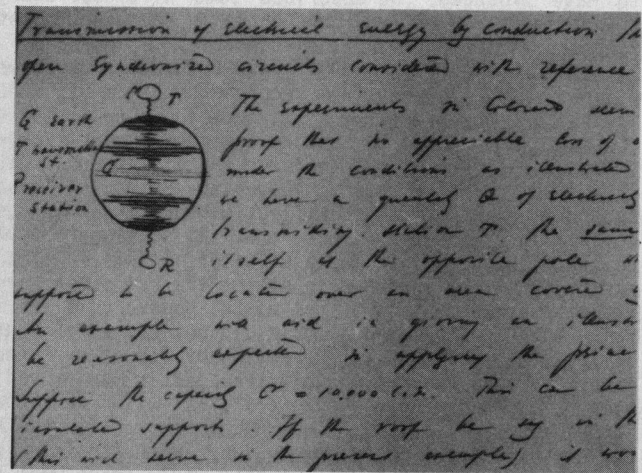 Transmission of electrical energy by conduction
open synchronized circuits considered with reference
C T
The experiments in Colorado
G earth
proof that no appreciable loss of
T transmitter
st.
under the conditions as illustrated
Receiver
station
we have a quantity Q of electricity
transmitting station T the same
R
itself at the opposite pole
supposed to be located over an area covered
An example will aid in giving an
be reasonably expected in applying the
Suppose the capacity C = 10,000 c.m. This can be
insulated supports. If the roof be say in the
(this will serve in the present example) is